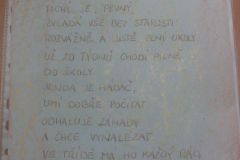 TICHÝ JE, PEVNÝ,
ZVLÁDÁ VŠE BEZ STAROSTÍ
ROZVÁŽNĚ A JISTĚ PLNÍ ÚKOLY
UŽ 20 TÝDNŮ CHODÍ PILNĚ
DO ŠKOLY
JENDA JE HÁDAČ,
UMÍ DOBŘE POČÍTAT
ODHALUJE ZÁHADY
A CHCE VYNALÉZAT
VE TŘÍDĚ MÁ HO KAŽDÝ RÁD